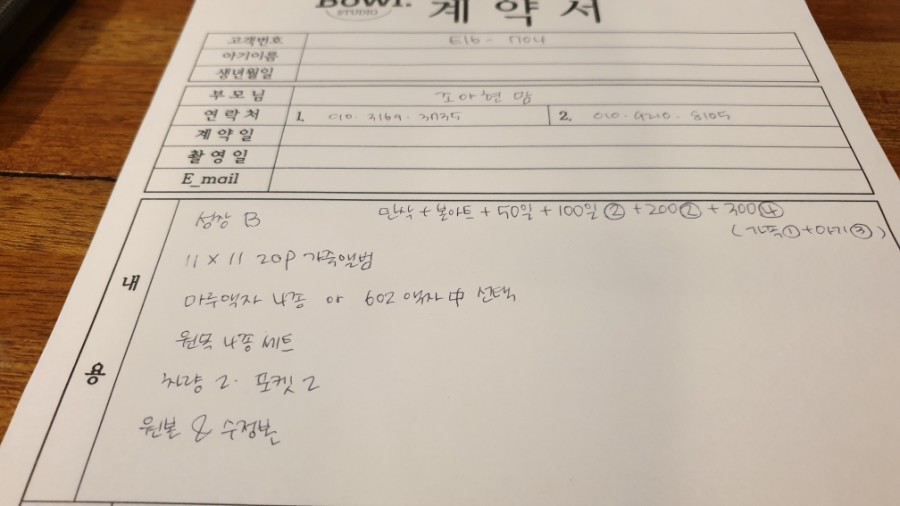 Bowl. 계약서
STUDIO
고객번호 E16 - 1704
아기이름
생년월일
부모님 조아현 맘
연락처 1. 010. 3169. 3735 2. 010. 9210. 8105
계약일
촬영일
E_mail
내용
성장 B 만삭 + 본아트 + 50일 + 100일② + 200② + 300④
(가족① + 아기③)
11 × 11 20p 가죽앨범
마루액자 4종 or 602 액자 中 선택
원목 4종 세트
차량 2. 포켓 2
원본 & 수정본